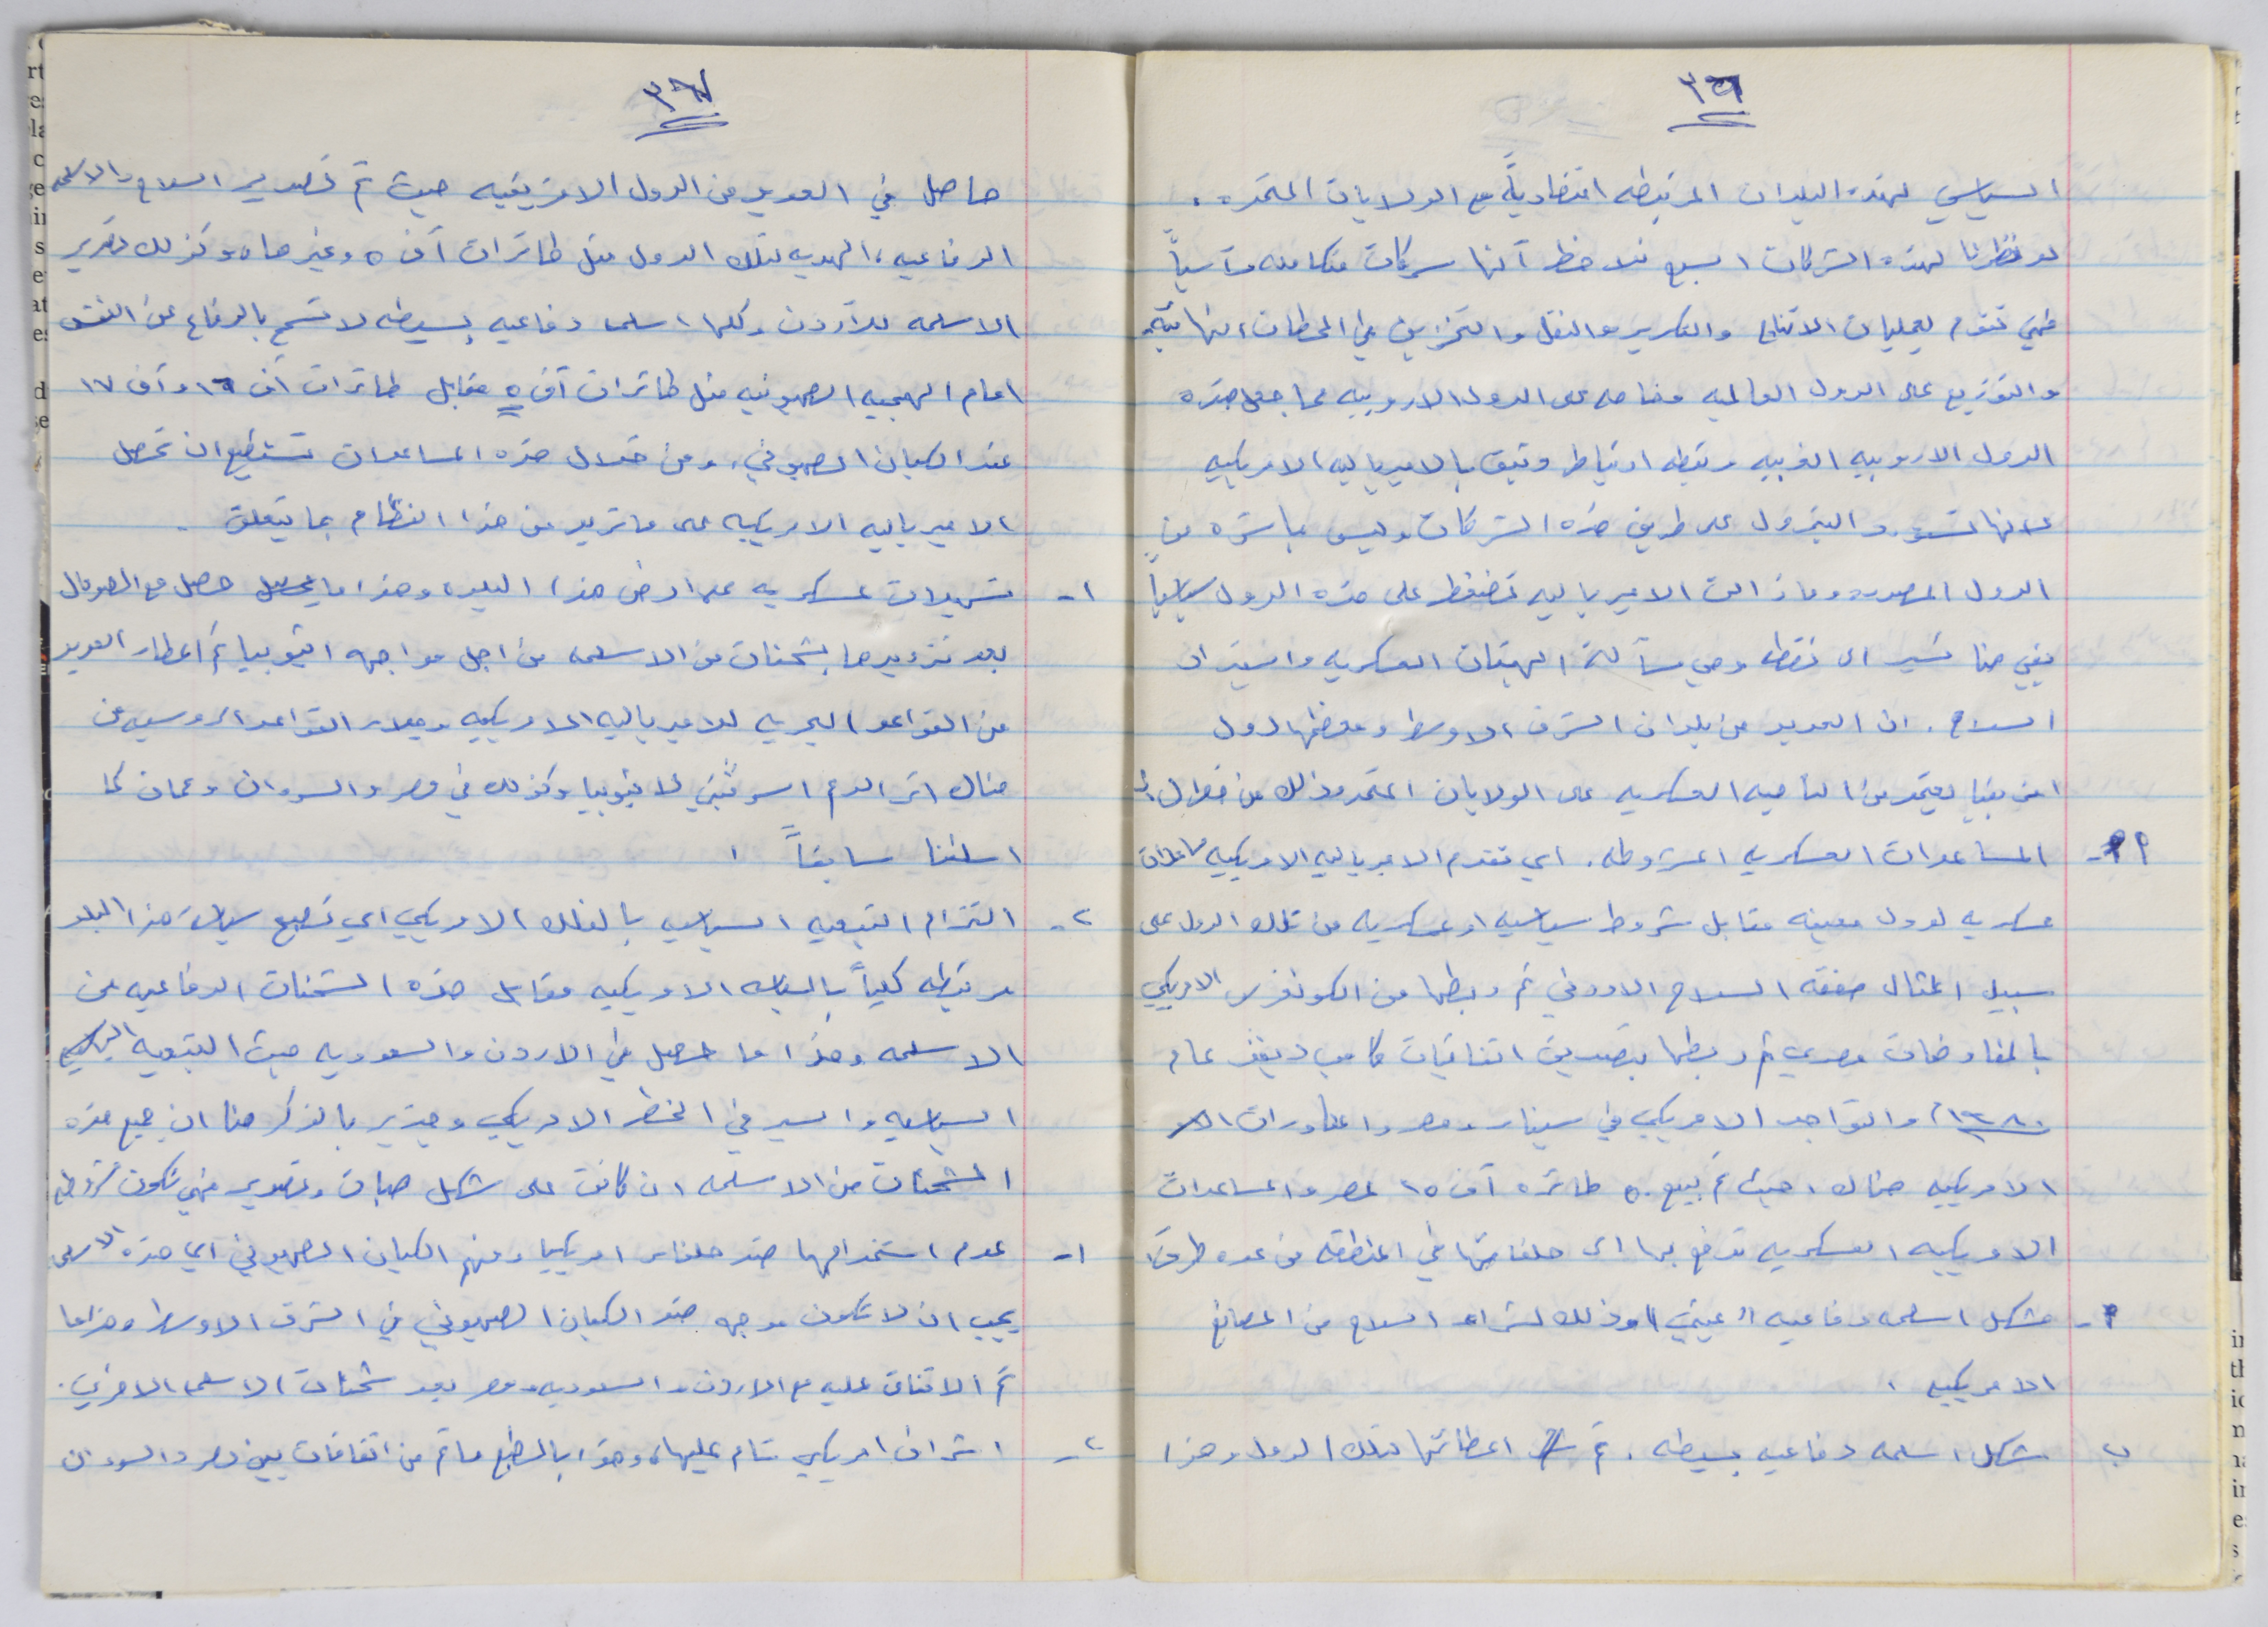 ٣٦
السياسي لهذه البلدان المرتبطه اقتصادياً مع الولايات المتحده .
لو نظرنا لهذه الشركات السبع نلاحظ أنها شركات متكامله رأسياً
فهي تقوم بعمليات الانتاج والتكرير والنقل والتخزين في المحطات النهائيه
والتوزيع على الدول العالميه وخاصه على الدول الاروبيه مما جعل هذه
الدول الاروبيه الغربيه مرتبطه ارتباط وثيق بالامبرياليه الامريكيه
لانها تستورد البترول على طريق هذه الشركات وليس مباشره من
الدول المصدره وما زالت الامبرياليه تضغط على هذه الدول سياسياً
بقي هنا نشير الى نقطه وهي مسألة الهيئات العسكريه واستيراد
السلاح . ان العديد من بلدان الشرق الاوسط ومعظمها دول
افريقيا يعتمد من الناحيه العسكريه على الولايات المتحده وذلك من خلال
أ- المساعدات العسكريه المشروطه . اي تقدم الامبرياليه الامريكيه مساعدات
عسكريه لدول معينه مقابل شروط سياسيه او عسكريه من تلك الدول على
سبيل المثال صفقه السلاح الاردني تم ربطها من الكونغرس الامريكي
بالمفاوضات مصر تم ربطها بتصديق اتفاقيات كامب ديفد عام
والتواجد الامريكي في سيناء ومصر والمناورات
الامريكيه هناك ، حيث تم بيع ٥٠ طائره أف ١٥ لمصر والمساعدات
الامريكيه العسكريه تدفع بها الى حلفائها في المنطقه من عده طرق
١- شكل اسلحه دفاعيه " عيني " وذلك لشراء السلاح من المصانع
الامريكيه .
ب شكل اسلحه دفاعيه بسيطه . تم اعطائها لتلك الدول وهذا
٣٧
حاصل في العديد من الدول الافريقيه حيث تم تصدير السلاح والاسلحه
الدفاعيه ، الهديه لتلك الدول مثل طائرات أف ٥ وغيرها ، وكذلك تصدير
الاسلحه للأردن وكلها اسلحه دفاعيه بسيطه لا تسمح بالدفاع عن النفس
امام الهجميه الصهيونيه مثل طائرات أف ٥ مقابل طائرات أف ١٦ وأف ١٧
عند الكيان الصهيوني ، ومن خلال هذه المساعدات تستطيع ان تحصل
الامبرياليه الامريكيه على ما تريد من هذا النظام بما يتعلق .
١- تسهيلات عسكريه على ارض هذا البلد ، وهذا ما حصل مع الصومال
بعد تزويدها بشحنات من الاسلحه من اجل مواجهه اثيوبيا تم اعطاء العديد
من القواعد البحريه للامبرياليه الامريكيه وجلاء القواعد الروسيه من
هناك اثر الدعم السوفيتي لاثيوبيا وكذلك في مصر والسودان وعمان كما
اسلفنا سابقاً .
٢- التزام التبعيه السياسيه بالفلك الامريكي اي تصبع سياسة هذا البلد
مرتبطه كلياً بالسياسه الامريكيه مقابل هذه الشحنات الدفاعيه من
الاسلحه وهذا ما حصل في الاردن والسعوديه حيث التبعيه
السياسيه والسير في الخط الامريكي وجدير بالذكر هنا ان جميع هذه
الشحنات من الاسلحه ان كانت على شكل هبات وتصدير فهي تكون شروطها
١- عدم استخدامها ضد حلفاء امريكيا ومنهم الكيان الصهيوني اي هذه الاسلحه
يجب ان لا تكون موجهه ضد الكيان الصهيوني في الشرق الاوسط وهذا ما
تم الاتفاق عليه مع الاردن والسعوديه ومصر بعد شحنات الاسلحه الاخرى .
٢- اشراف امريكي تام عليها ، وهذا بالطبع ما تم من اتفاقات بين مصر والسودان